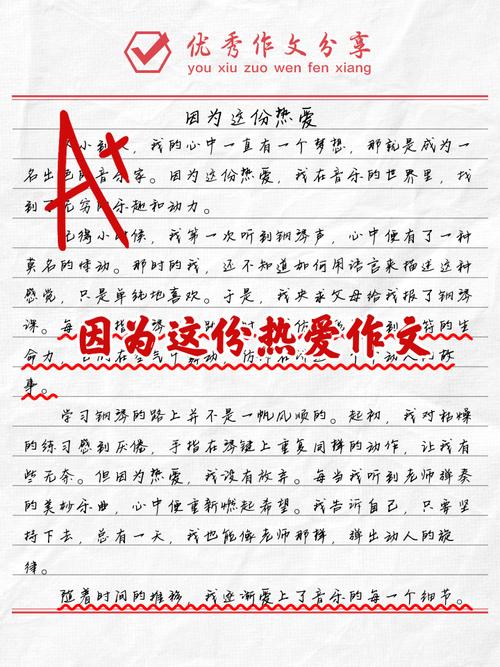 优秀作文分享
you xiu zuo wen fen xiang
因为这份热爱
A+
小到大，我的心中一直有一个梦想，那就是成为一
名出色的音乐家。因为这份热爱，我在音乐的世界里，找
到了无穷的乐趣和动力。
记得小时候，我第一次听到钢琴声，心中便有了一种
莫名的悸动。那时的我，还不知道如何用语言来描述这种
感觉，只是单纯地喜欢。于是，我央求父母给我报了钢琴
课。每
符的生
因为这份热爱作文
命力，
事。
学习钢琴的路上并不是一帆风顺的。起初，我对枯燥
的练习感到厌倦，手指在琴键上重复同样的动作，让我有
些无奈。但因为热爱，我没有放弃。每当我听到老师弹奏
的美妙乐曲，心中便重新燃起希望。我告诉自己，只要坚
持下去，总有一天，我也能像老师那样，弹出动人的旋
律。
随着时间的推移，我逐渐爱上了音乐的每一个细节。